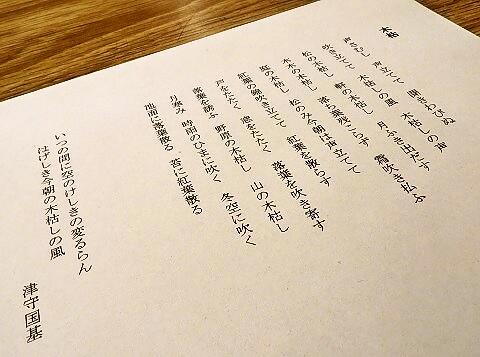 木枯
声さむし　声立てて　聞きわびぬ　木枯しの声
吹き立てて　木枯しの風　月ふき出だす　霜吹き払ふ
松の木枯し　軒の木枯し
木木の木枯し　落ち葉残こらず
庭の木枯し　松のみ今朝は声立てて
紅葉の錦吹き立てて　紅葉を散らす
戸をたたく　窓をたたく　落葉を吹き寄す
落葉を誘ふ　野原の木枯し　山の木枯し
月寒み　時雨のひまに吹く　冬空に吹く
地面に落葉散る　苔に紅葉散る
いつの間に空のけしきの変るらん
はげしき今朝の木枯しの風
津守国基